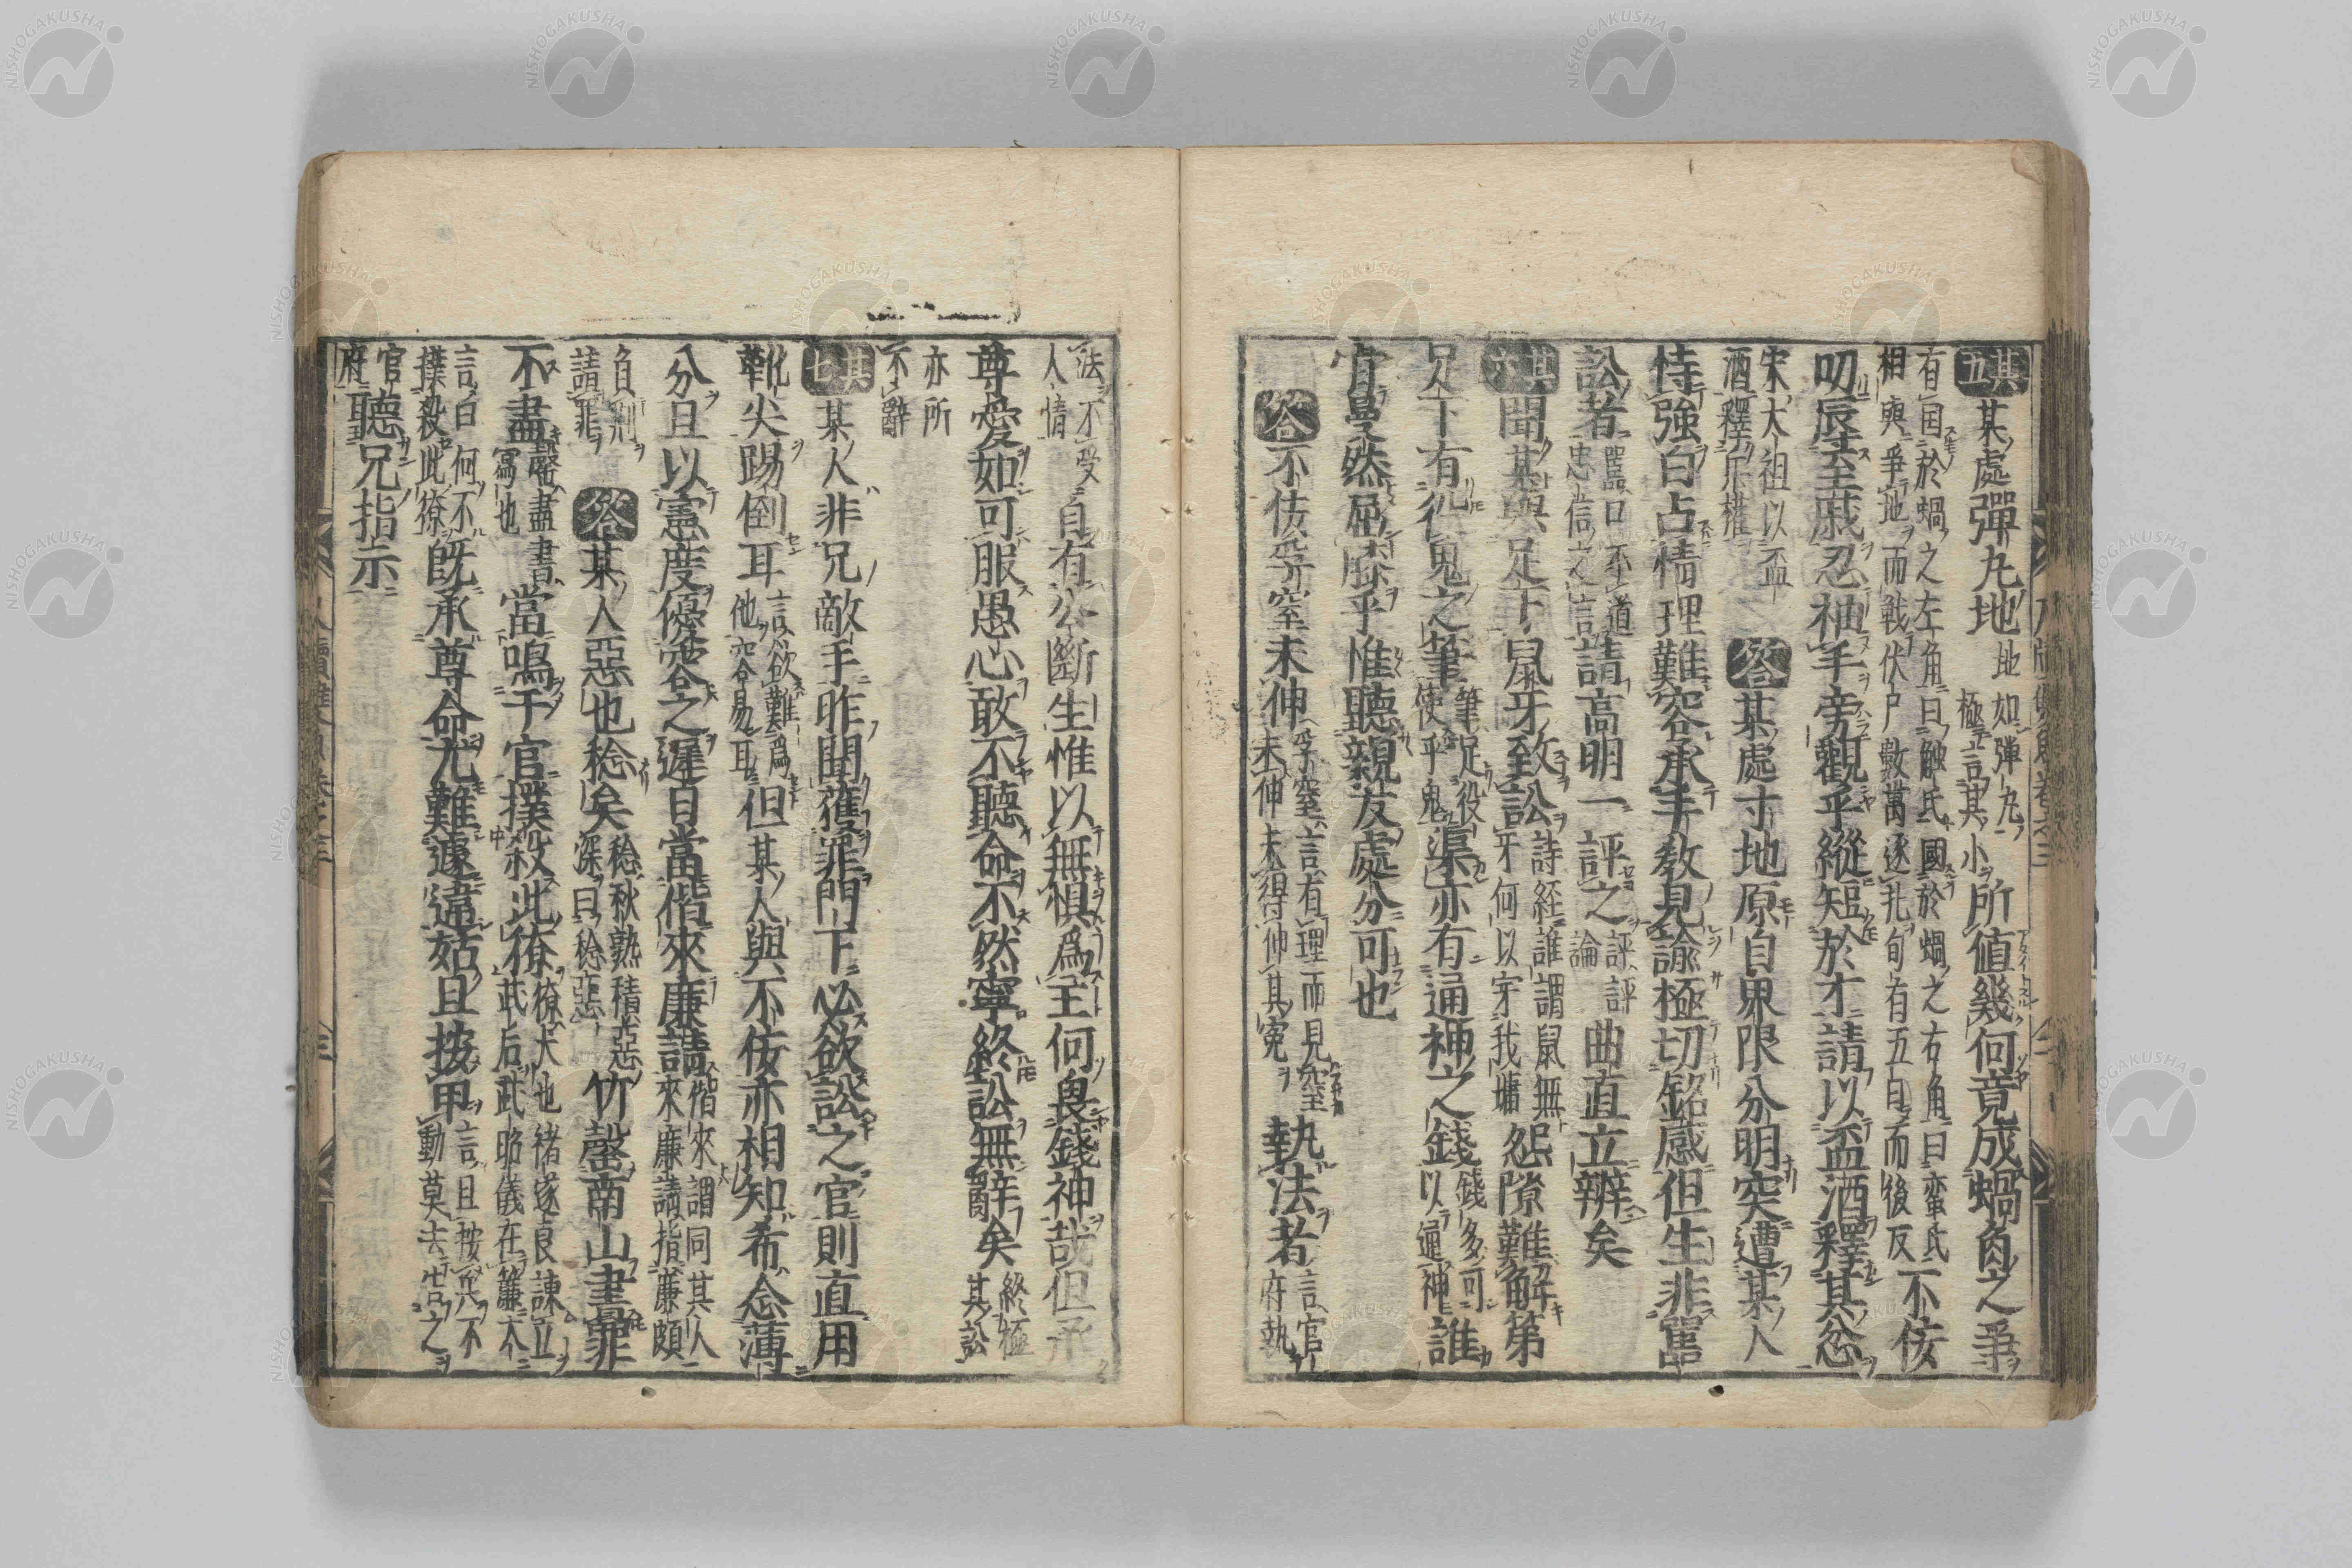 其五 某處彈丸地 地如彈丸極言其小 所値幾何竟成蝸角之爭
有国於蝸之左角曰触氏國於蝸之右角曰蛮氏相與爭地而戰伏尸數萬逐北旬有五日而後反 不佞
叨辰至戚忍袖手旁觀乎縱短於才請以盃酒釋其忿
宋太祖以盃酒釋兵權 答 某處寸地原自界限分明突遭某人
恃強白占情理難容承手教見諭極切銘感但生非嚚
訟者 嚚口不道忠信之言 請高明一評之 評評論 曲直立辨矣
其六 聞某與足下鼠牙致訟 詩経誰謂鼠無牙何以穿我墉 怨隙難解第
足下有役鬼之筆 筆足役使乎鬼 渠亦有通神之錢 錢多可以通神 誰
肯曼然屈膝乎惟聽親友處分可也
答 不佞孚窒未伸 孚窒言有理而見窒未伸未得伸其寃 執法者 言官府執
法不受人情 自有公斷生惟以無惧爲主何畏錢神哉但承
尊愛如可服愚心敢不聽命不然寧終訟無辭矣 終極其訟
亦所不辭
其七 某人非兄敵手昨聞獲罪門下必欲訟之官則直用
化靴尖踢倒耳 言欲難爲他容易耳 但某人與不佞亦相知希念薄
分且以憲度優容之遲日當偕來廉請 偕來謂同其人來廉請指廉頗
負荆請罪 答 某人惡也稔矣 稔秋熟積惡深曰稔惡 竹罄南山書罪
不盡 罄盡書寫也 當鳴于官撲殺此獠 獠犬也褚遂良諫立武后武昭儀在簾大
言曰何不撲殺此獠 既承尊命尤難遽違姑且按甲 言且按兵不動莫去告之
官府 聽兄指示